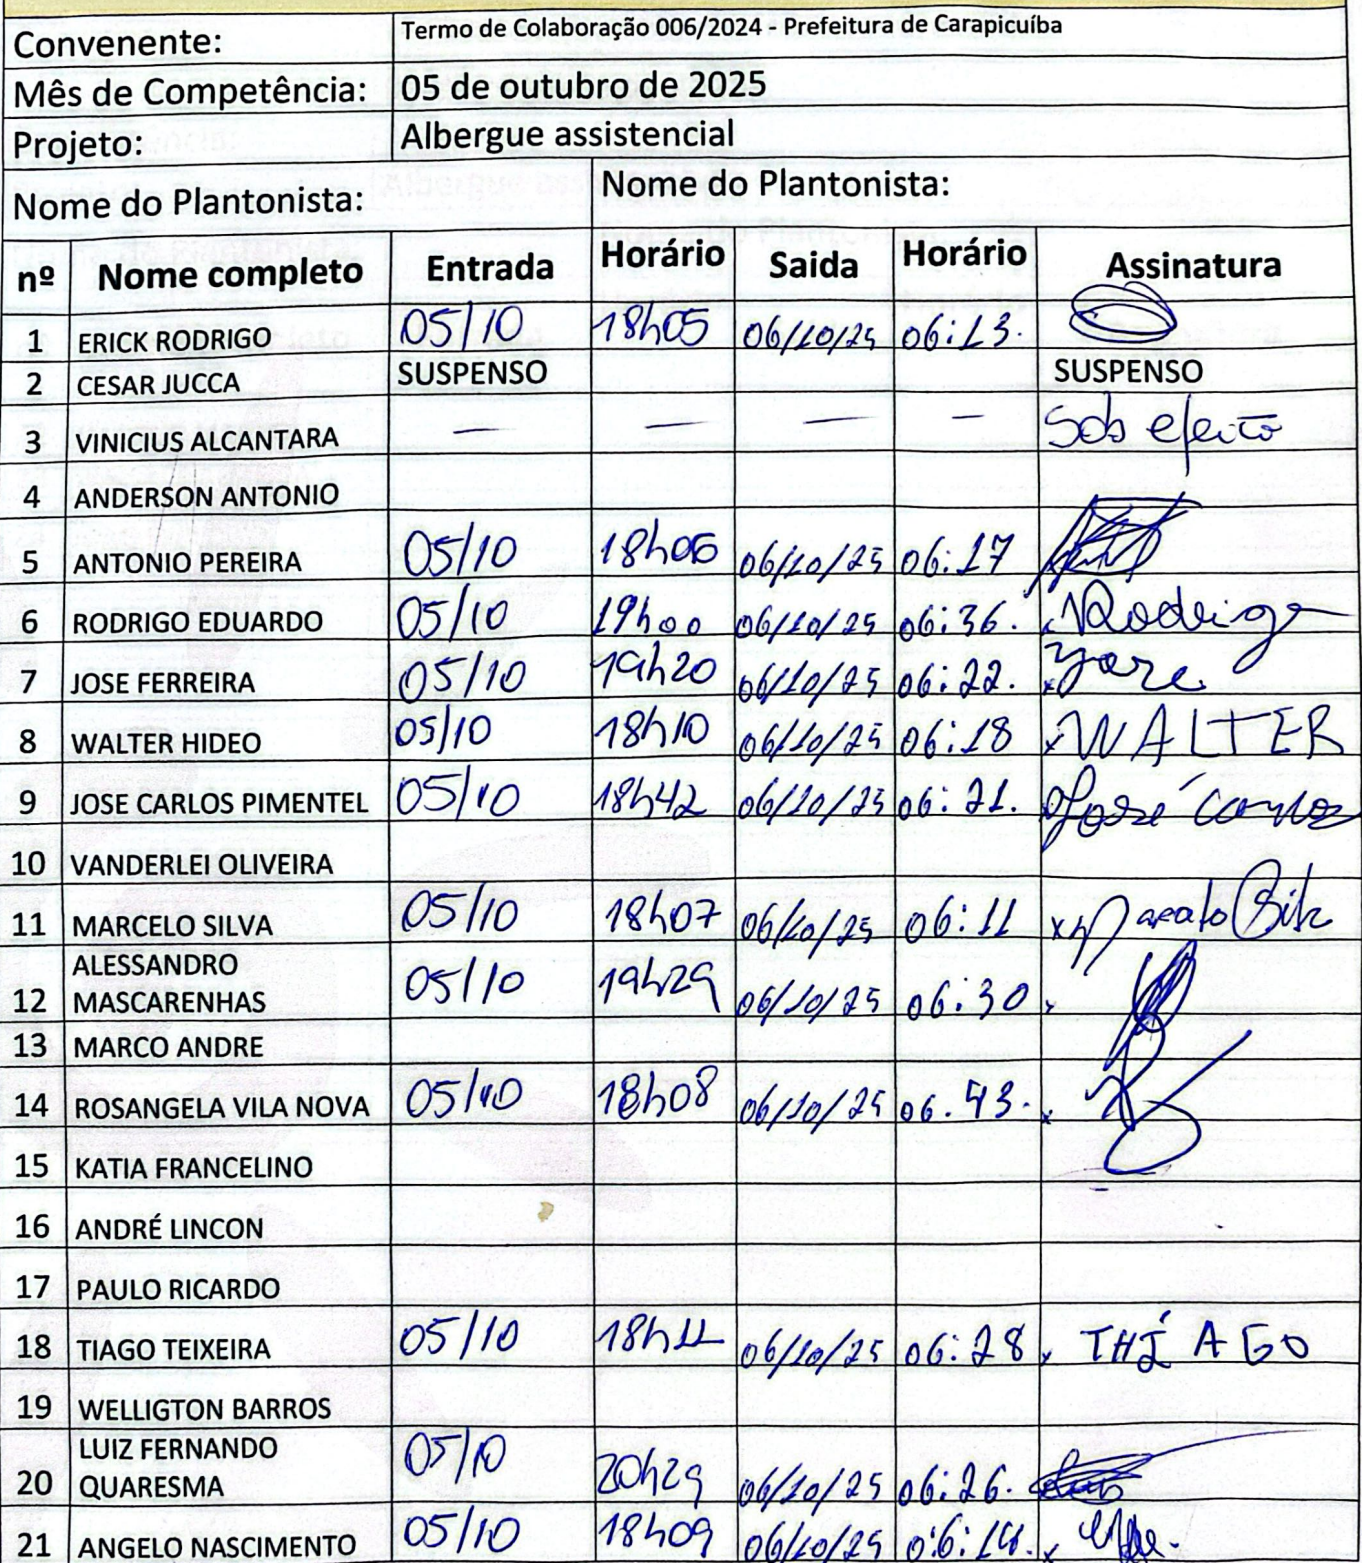 Convenente: Termo de Colaboração 006/2024 - Prefeitura de Carapicuíba
Mês de Competência: 05 de outubro de 2025
Projeto: Albergue assistencial
Nome do Plantonista: Nome do Plantonista:
nº Nome completo Entrada Horário Saida Horário Assinatura
1 ERICK RODRIGO 05/10 18h05 06/10/25 06:13.
2 CESAR JUCCA SUSPENSO SUSPENSO
3 VINICIUS ALCANTARA — — — — Sob efeito
4 ANDERSON ANTONIO
5 ANTONIO PEREIRA 05/10 18h06 06/10/25 06:17
6 RODRIGO EDUARDO 05/10 19h00 06/10/25 06:36. x Rodrigo
7 JOSE FERREIRA 05/10 19h20 06/10/25 06:22. x José
8 WALTER HIDEO 05/10 18h10 06/10/25 06:18 x WALTER
9 JOSE CARLOS PIMENTEL 05/10 18h42 06/10/25 06:21. José Carlos
10 VANDERLEI OLIVEIRA
11 MARCELO SILVA 05/10 18h07 06/10/25 06:11 x
12 ALESSANDRO
MASCARENHAS 05/10 19h29 06/10/25 06:30 x
13 MARCO ANDRE
14 ROSANGELA VILA NOVA 05/10 18h08 06/10/25 06.43. x
15 KATIA FRANCELINO
16 ANDRÉ LINCON
17 PAULO RICARDO
18 TIAGO TEIXEIRA 05/10 18h11 06/10/25 06:28 x THÍAGO
19 WELLIGTON BARROS
20 LUIZ FERNANDO
QUARESMA 05/10 20h29 06/10/25 06:26.
21 ANGELO NASCIMENTO 05/10 18h09 06/10/25 06:14. x